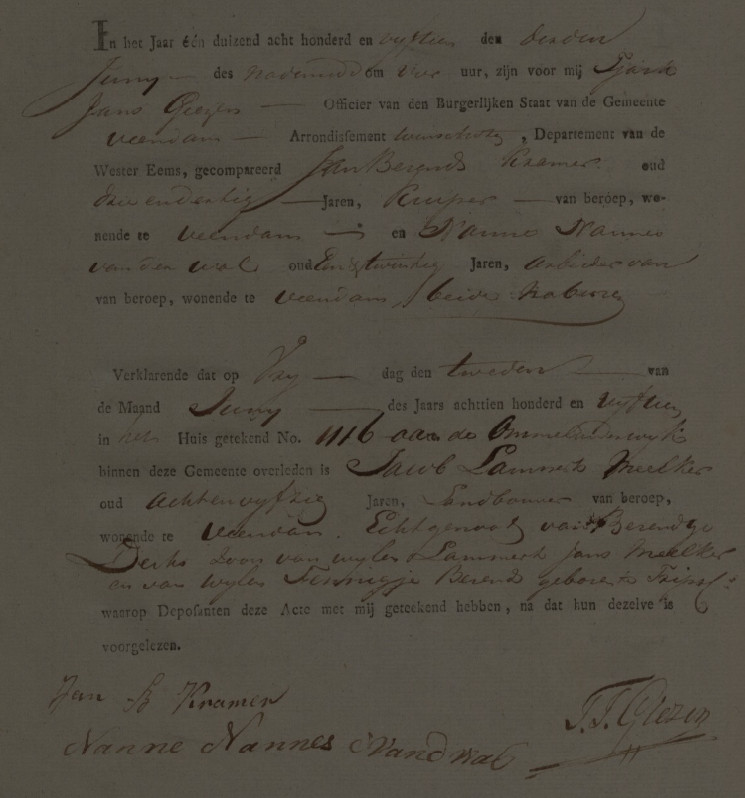 In het Jaar één duizend acht honderd en vyftien den derden
Juny des nademiddom vier uur, zijn voor mij
Jans Officier van den Burgerlijken Staat van de Gemeente
Veendam Arrondissement Winschoten, Departement van de
Wester Eems, gecompareerd Jan Berends Kramer oud
drie en dertig Jaren, Kuiper van beroep, wo-
nende te Veendam en Nanne Nannes
van der wal oud Een & twintig Jaren, arbeider van
van beroep, wonende te Veendam, beide Naburen
Verklarende dat op Vry dag den tweden van
de Maand Juny des Jaars achttien honderd en vyftien
in het Huis getekend No. 1116 aan de Ommelanderwyk
binnen deze Gemeente overleden is Jacob Lammerts Meelker
oud achtenvyftig Jaren, Landbouwer van beroep,
wonende te Veendam. Echtgenoot van Berendje
Derks Zoon van wylen Lammert Jans Meelker
en van wylen Fennigje Berends geboren te
waarop Deposanten deze Acte met mij geteekend hebben, na dat hun dezelve is
voorgelezen.
Jan B Kramer
Nanne Nannes vand wal